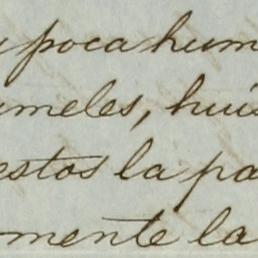 y poca hum
umeles, huis
estos la pa
mente la